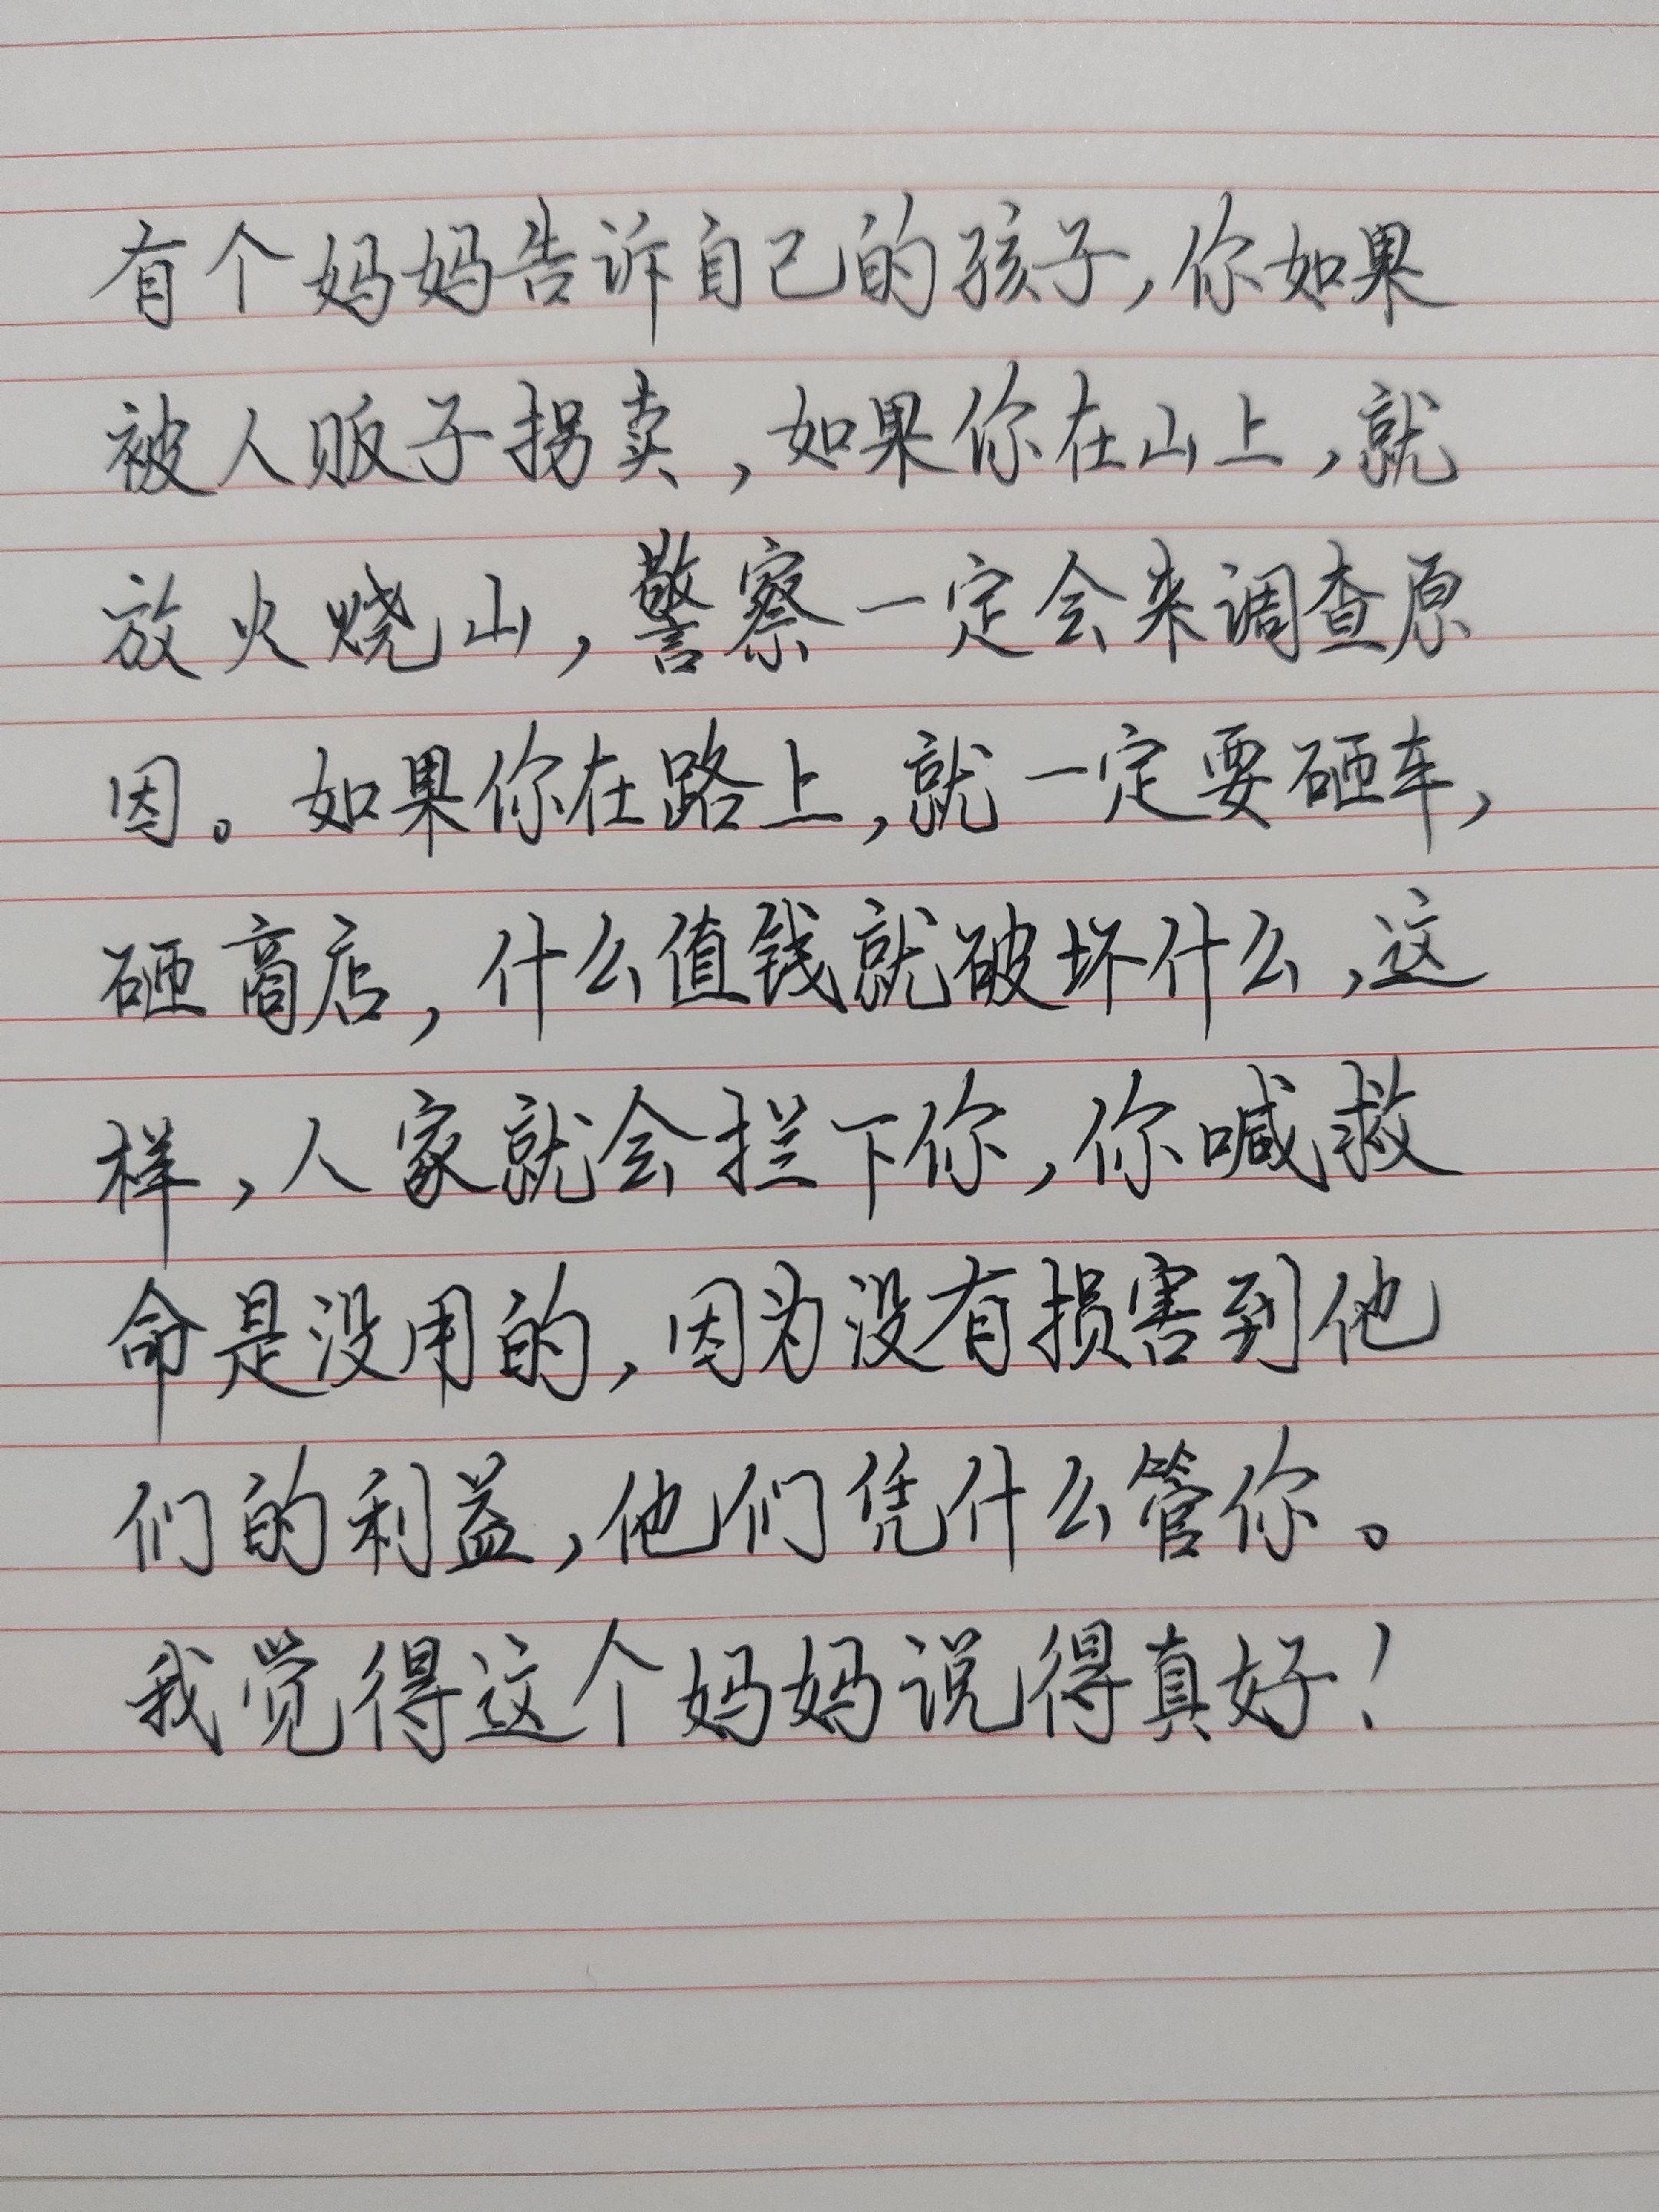 有个妈妈告诉自己的孩子,你如果
被人贩子拐卖,如果你在山上,就
放火烧山,警察一定会来调查原
因。如果你在路上,就一定要砸车,
砸商店,什么值钱就破坏什么,这
样,人家就会拦下你,你喊救
命是没用的,因为没有损害到他
们的利益,他们凭什么管你。
我觉得这个妈妈说得真好!